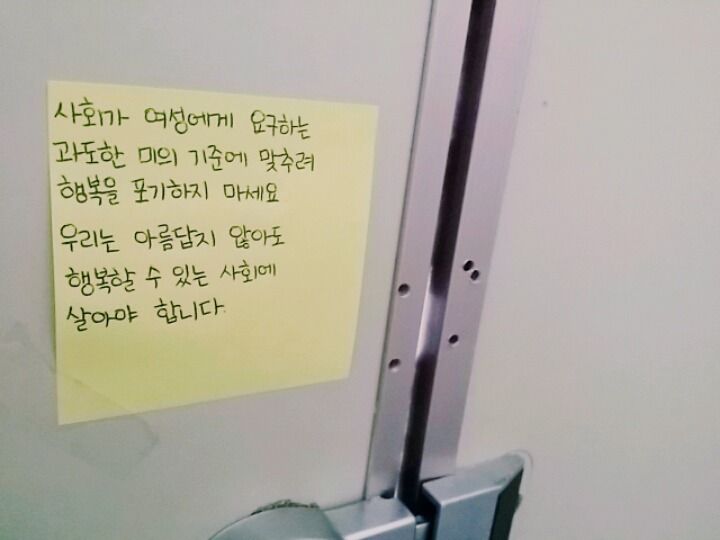 사회가 여성에게 요구하는
과도한 미의 기준에 맞추려
행복을 포기하지 마세요
우리는 아름답지 않아도
행복할 수 있는 사회에
살아야 합니다.